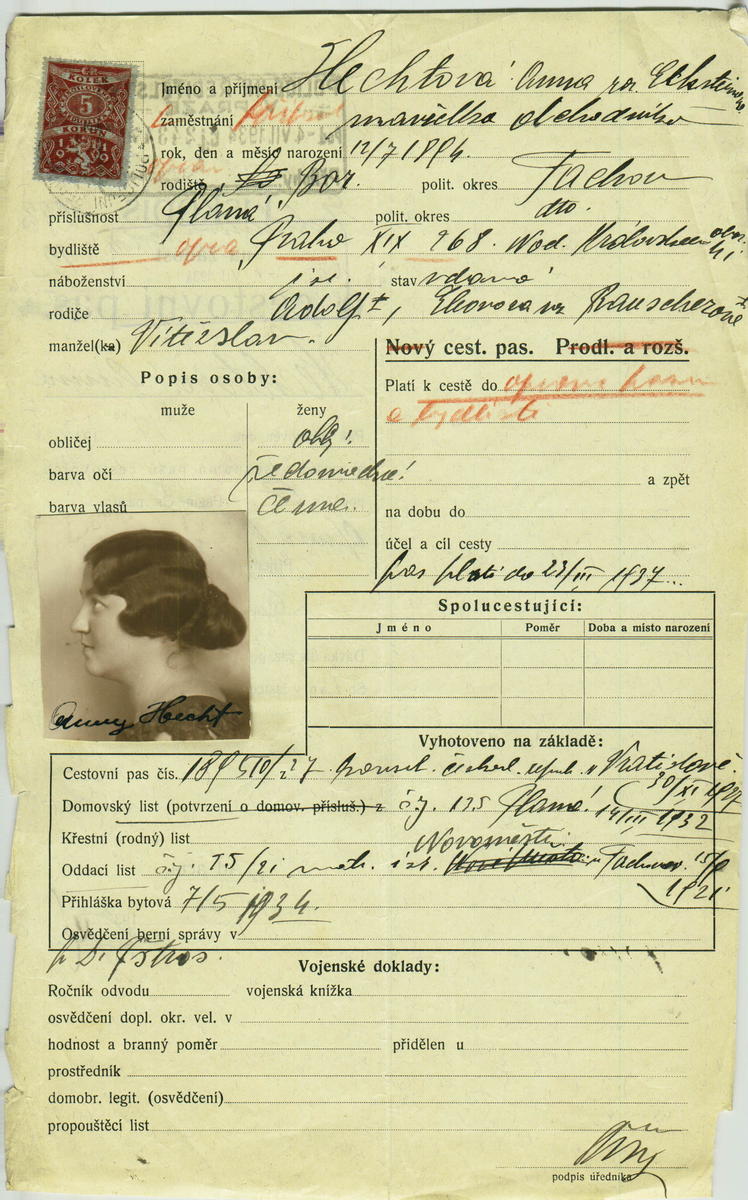 KOLEK
5
KORUN
1919
Jméno a příjmení Hechtová Anna roz. Eckstein
zaměstnání manželka obchodníka
rok, den a měsíc narození 12/7 1894.
rodiště Bor. polit. okres Tachov
příslušnost Planá polit. okres dto.
bydliště oprava Praha XIX 268.
náboženství isr. stav vdaná
rodiče Adolf, Eleonora roz. Rauscherové
manžel(ka) Vítězslav.
Nový cest. pas. Prodl. a rozš.
Popis osoby:
Platí k cestě do oprava
a bydliště
muže ženy
obličej obl.
barva očí šedomodré
a zpět
barva vlasů černé.
na dobu do
účel a cíl cesty
pas platí do 23/III 1937
Spolucestující:
Jméno Poměr Doba a místo narození
Anny Hecht
Vyhotoveno na základě:
Cestovní pas čís. konsul. v Vratislavě
30/XI 1927
Domovský list (potvrzení o domov. přísluš.) z čj. 175 Planá 14/III 1932
Křestní (rodný) list
Novoměstí
Oddací list čj. 25/21 matr. isr. Tachov
1921
Přihláška bytová 7/5 1934.
Osvědčení berní správy v
Vojenské doklady:
Ročník odvodu vojenská knížka
osvědčení dopl. okr. vel. v
hodnost a branný poměr přidělen u
prostředník
domobr. legit. (osvědčení)
propouštěcí list
podpis úředníka